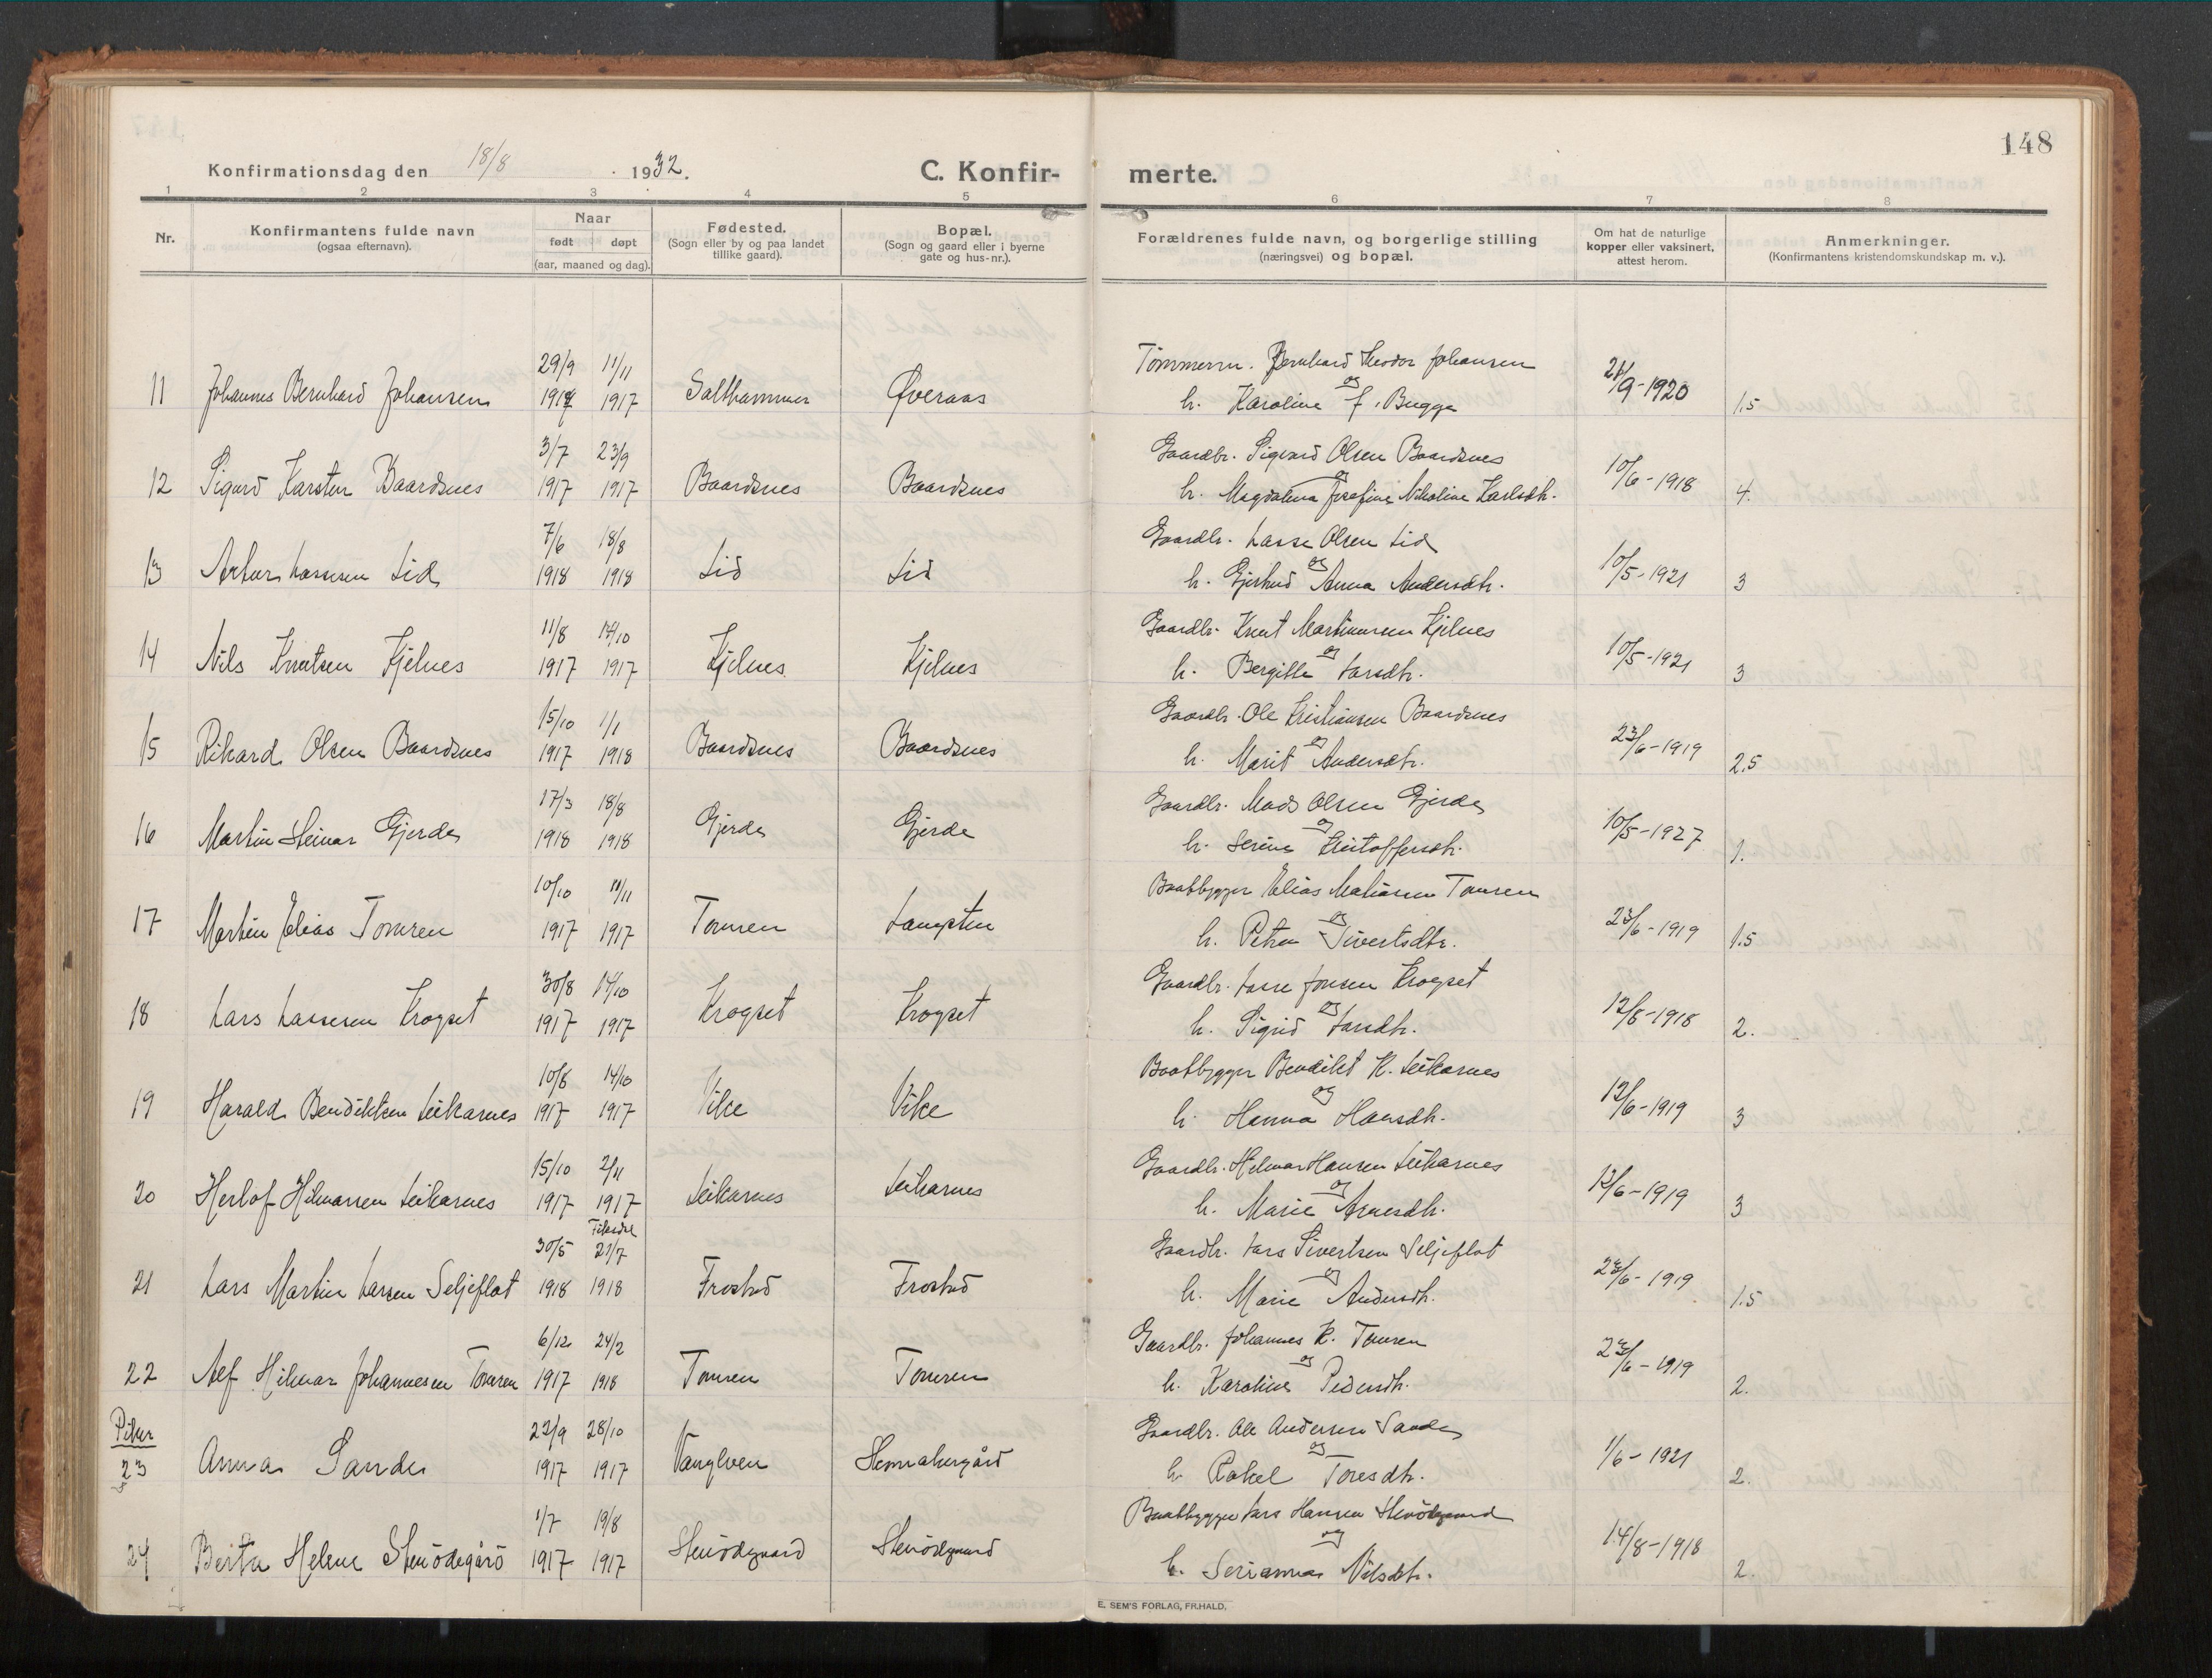 148
Konfirmationsdag den 18/8 1932. C. Konfir- merte.
1 2 3 4 5 6 7 8
Nr.
Konfirmantens fulde navn
(ogsaa efternavn).
Naar
født døpt
(aar, maaned og dag).
Fødested.
(Sogn eller by og paa landet
tillike gaard).
Bopæl.
(Sogn og gaard eller i byerne
gate og hus-nr.).
Forældrenes fulde navn, og borgerlige stilling
(næringsvei) og bopæl.
Om hat de naturlige
kopper eller vaksinert,
attest herom.
Anmerkninger.
(Konfirmantens kristendomskundskap m. v.).
29/9 11/11 Tømmerm. Bernhard Theodor Johansen
og
11 Johannes Bernhard Johansen 1917 1917 Salthammer Øveraas h. Karoline f. Bugge /9-1920 1.5
3/7 23/9 Gaardbr. Sigvard Olsen Baardsnes
og
12 Sigurd Karsten Baardsnes 1917 1917 Baardsnes Baardsnes h. Magdalena Josefine Nikoline Karlsdtr. 10/6-1918 4.
7/6 18/8 Gaardbr. Lasse Olsen Lid
og
13 Artur Lassesen Lid 1918 1918 Lid Lid h. Gjertrud Anna Andersdtr. 10/5-1921 3
11/8 14/10 Gaardbr. Knut Martinusen Kjelnes
og
14 Nils Knutsen Kjelnes 1917 1917 Kjelnes Kjelnes h. Bergitte Larsdtr. 10/5-1921 3
15/10 1/1 Gaardbr. Ole Kristiansen Baardsnes
og
15 Rikard Olsen Baardsnes 1917 1918 Baardsnes Baardsnes h. Marit Andersdtr. 23/6-1919 2.5
17/3 18/8 Gaardbr. Mads Olsen Gjerde
og
16 Martin Steinar Gjerde 1918 1918 Gjerde Gjerde h. Serine Kristoffersdtr. 10/5-1927 1.
10/10 11/11 Baatbygger Elias Matiasen Tomren
og
17 Martin Elias Tomren 1917 1917 Tomren Langsten h. Petra Sivertsdtr. 23/6-1919 1.5
30/8 14/10 Gaardbr. Lasse Jonsen Krogset
og
18 Lars Lassesen Krogset 1917 1917 Krogset Krogset h. Sigrid Larsdtr. 12/8-1918 2.
10/8 14/10 Baatbygger Bendikt K. Leikarnes
og
19 Harald Bendiktsen Leikarnes 1917 1917 Vike Vike h. Hanna Hansdtr. 12/6-1919 3
15/10 2/11 Gaardbr. Hilmar Hansen Leikarnes
og
20 Herlof Hilmarsen Leikarnes 1917 1917 Leikarnes Leikarnes h. Marie Arnesdtr. 12/6-1919 3
Fiksdal
30/5 21/7 Gaardbr. Lars Sivertsen Seljeflot
og
21 Lars Martin Larsen Seljeflot 1918 1918 Frostad Frostad h. Marie Andersdtr. 23/6-1919 1.5
6/12 24/2 Gaardbr. Johannes K. Tomren
og
22 Alf Hilmar Johannesen Tomren 1917 1918 Tomren Tomren h. Karoline Pedersdtr. 23/6-1919 2.
Piker
22/9 28/10 Gaardbr. Ole Andersen Sande
og
23 Anna Sande 1917 1917 Vanglven h. Rakel Toresdtr. 1/6-1921 2.
1/7 19/8 Baatbygger Lars Hansen Stenødegaard
og
24 Berta Helene Stenødegård 1917 1917 Stenødegaard Stenødegaard h. Serianna Nilsdtr. 14/8-1918 2.
E. SEM'S FORLAG, FR.HALD.